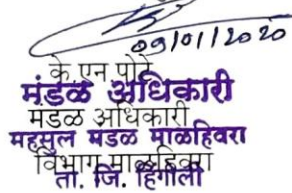 09/01/2020
के.एन.पोटे
मंडळ अधिकारी
मंडळ अधिकारी
महसुल मंडळ माळहिवरा
विभाग माळहिवरा
ता. जि. हिंगोली